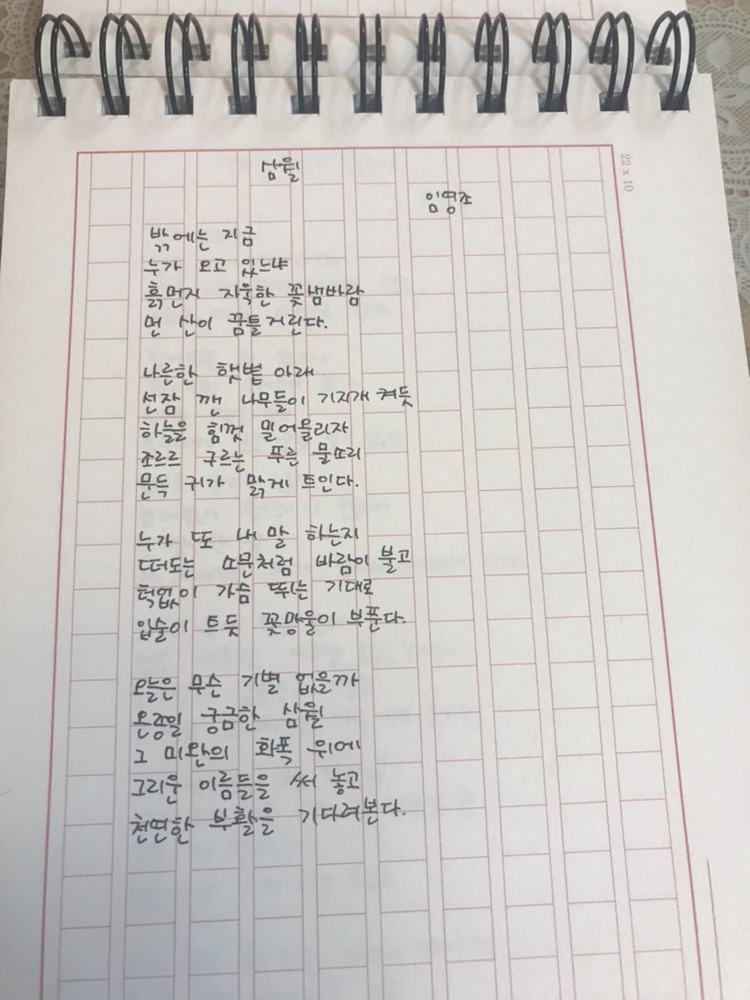 삼월
임영조
밖에는 지금
누가 오고 있느냐
흙먼지 자욱한 꽃샘바람
먼 산이 꿈틀거린다.
나른한 햇볕 아래
선잠 깬 나무들이 기지개 켜듯
하늘을 힘껏 밀어올리자
조르르 구르는 푸른 물소리
문득 귀가 맑게 트인다.
누가 또 내 말 하는지
떠도는 소문처럼 바람이 불고
턱없이 가슴 뛰는 기대로
입술이 트듯 꽃망울이 부푼다.
오늘은 무슨 기별 없을까
온종일 궁금한 삼월
그 미완의 화폭 위에
그리운 이름들을 써 놓고
천연한 부활을 기다려본다.
22 x 10